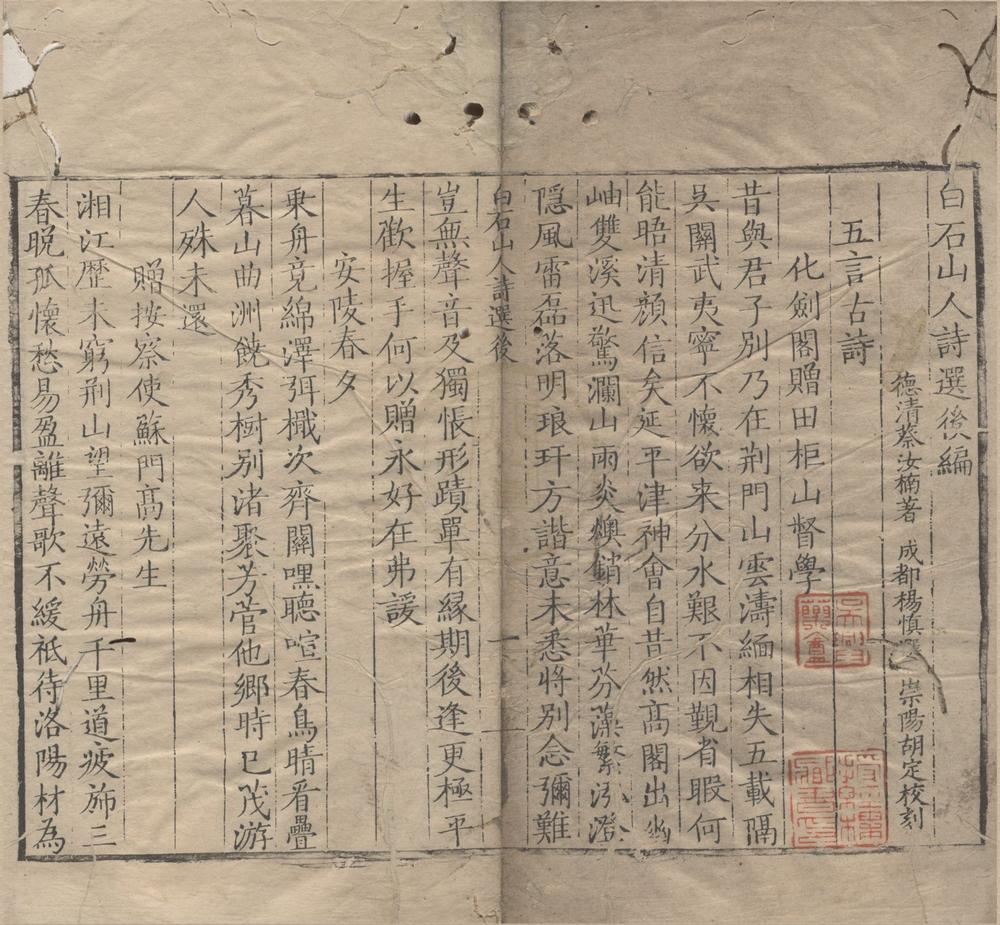 白石山人詩選後編
德清蔡汝楠著　成都楊慎選　崇陽胡定校刻
五言古詩
化劍閣贈田柜山督學
昔與君子別乃在荆門山雲濤緬相失五載隔
吳關武夷寧不懷欲来分水艱不因覲省暇何
能晤清顏信矣延平津神會自昔然高閣出幽
岫雙溪迅驚瀾山雨炎燠銷林華芬藻繁泓澄
隱風雷磊落明琅玕方諧意未悉將別念彌難
白石山人詩選後
一
豈無聲音及獨悵形蹟單有緣期後逢更極平
生歡握手何以贈永好在弗諼
安陵春夕
乗舟竞綿澤弭檝次齊關嘿聽喧春鳥晴看疊
暮山曲洲饒秀樹別渚聚芳菅他鄉時已茂游
人殊未還
贈按察使蘇門高先生
湘江歷未窮荆山望彌遠勞舟千里道疲斾三
春晚孤懷愁易盈離聲歌不緩祗待洛陽材為